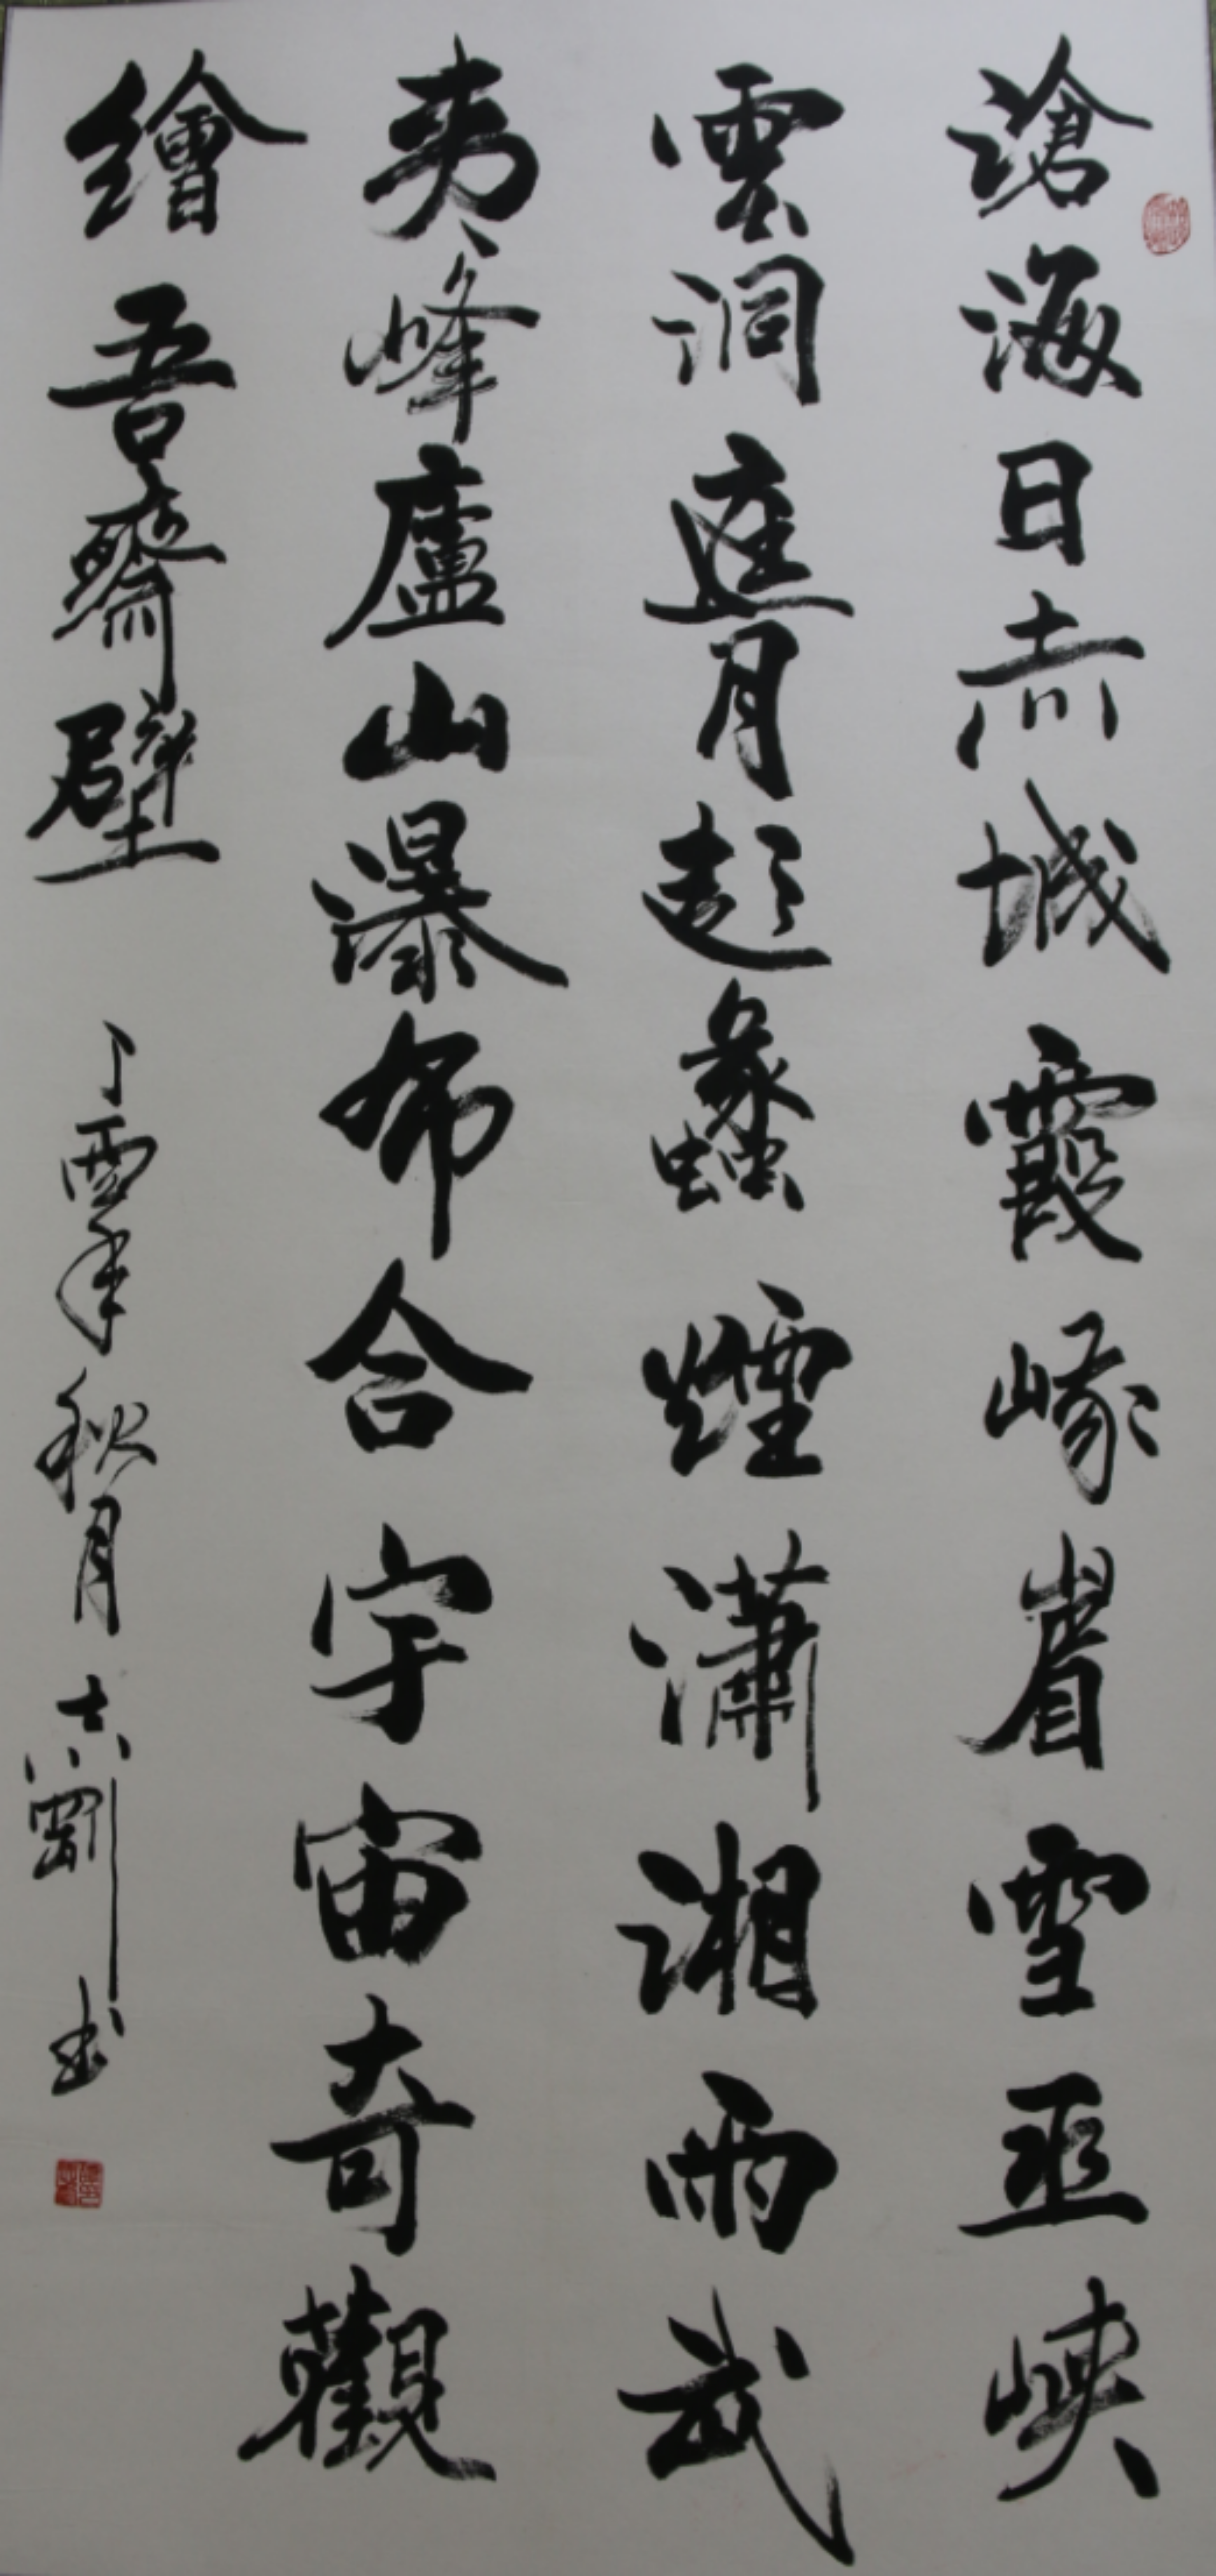 滄海日赤城霞峩眉雪巫峽
雲洞庭月彭蠡煙瀟湘雨武
夷峰廬山瀑布合宇宙奇觀
繪吾齋壁
丁酉年秋月志剛書